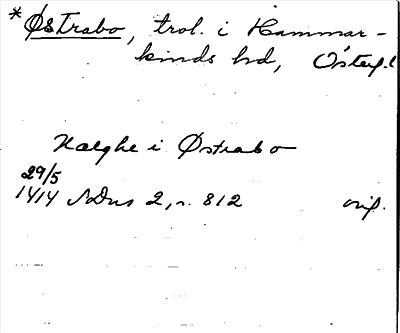 *Østrabo, trol. i Hammar-
kinds hd, Österg.l
Helghe i Østrabo
29/5
1414 SDns 2, n. 812 orig.